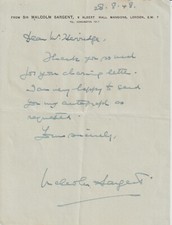 28.8.48.
FROM SIR MALCOLM SARGENT, 9 ALBERT HALL MANSIONS, LONDON, S.W.7
Dear Mr
Thank you so much
for your charming letter.
I am very happy to send
you my autograph as
requested.
Yours sincerely,
Malcolm Sargent.